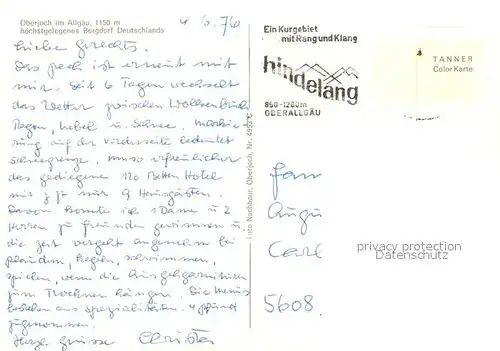 Oberjoch im Allgäu, 1150 m
höchstgelegenes Bergdorf Deutschlands
4.6.76
Liebe Gerechts.
Das pech ist erneut mit
mir. Seit 6 Tagen wechselt
das Wetter zwischen Wolkenbruch
Regen, Nebel u. Schnee. Markie-
rung auf der Vorderseite bedeutet
Schneegrenze. Umso erfreulicher
das gediegene 120 Betten Hotel
mit z. Zt nur 9 Hausgästen.
Davon konnte ich 1 Dame u 2
Herren zu freunden gewinnen u
die zeit vergeht angenehm bei
plaudern, Kegeln, schwimmen,
spielen, wenn die Ausgehgarnituren
zum Trocknen hängen. Die Menüs
bestehen aus Spezialitäten. 4 pfund
zugenommen.
Herzl. grüsse Christa
Foto Nachbaur, Oberjoch, Nr. 4953 C
Ein Kurgebiet
mit Rang und Klang
hindelang
850-1200m
OBERALLGÄU
TANNER
Color Karte
Fam
Augu
Carl
5608
privacy protection
Datenschutz